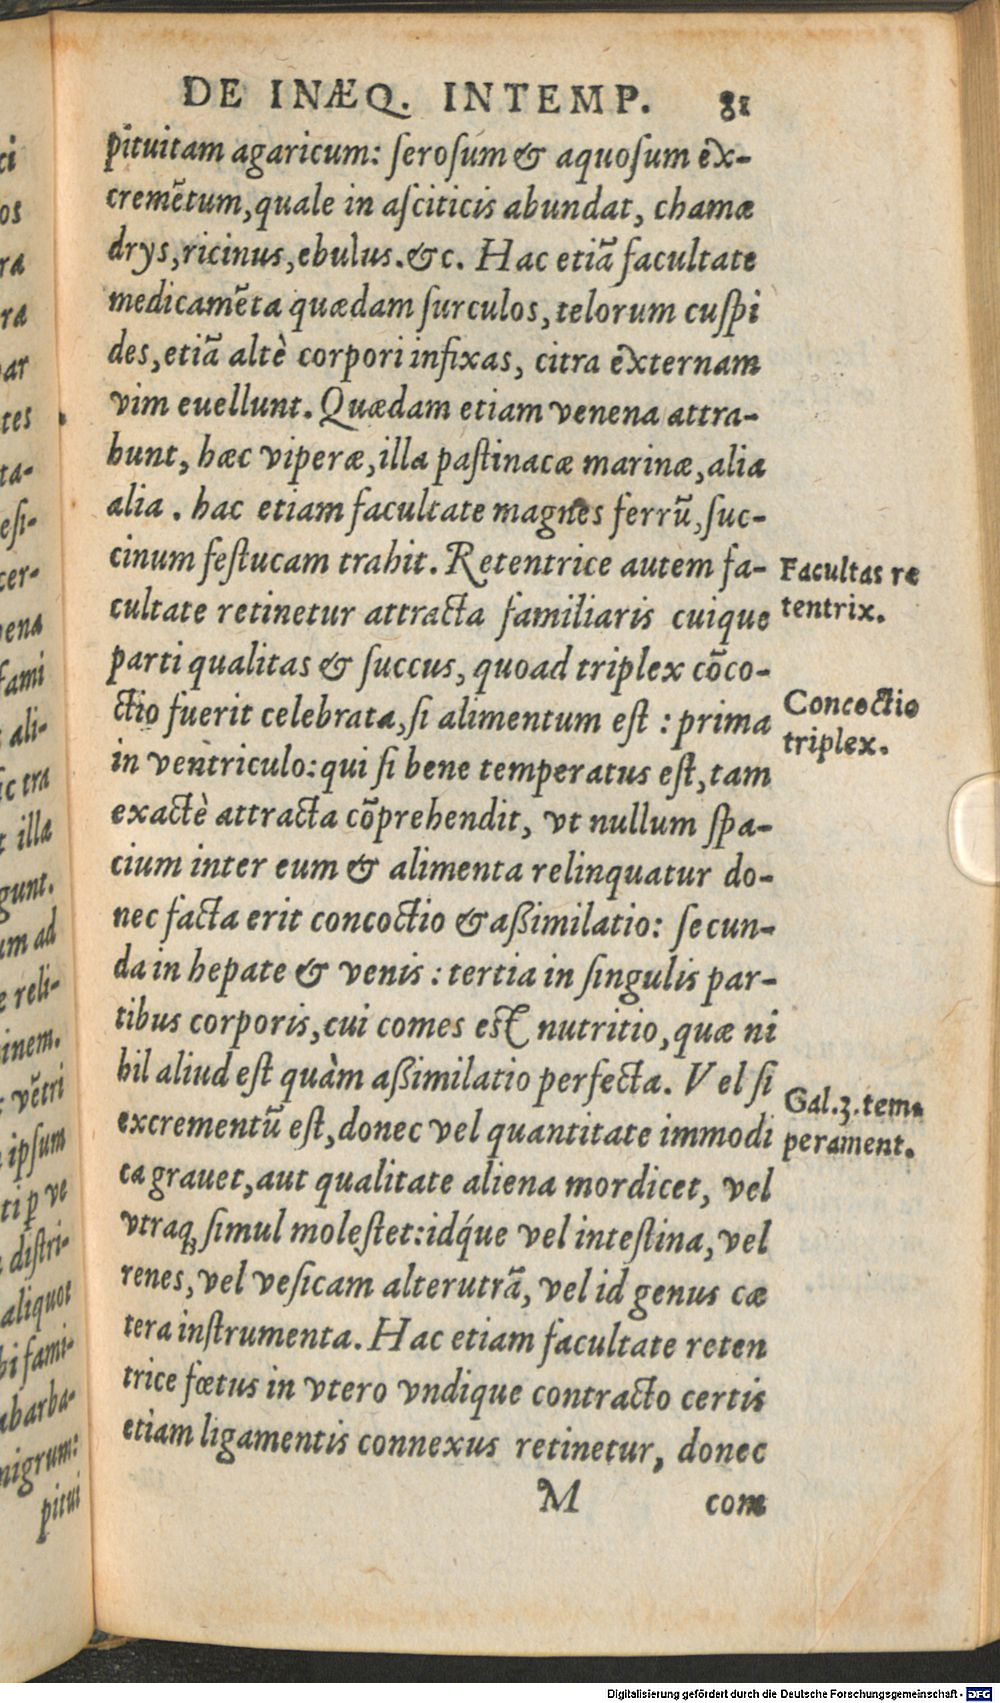 DE INÆQ. INTEMP. 81
pituitam agaricum: ſeroſum & aquoſum ex-
cremētum, quale in aſciticis abundat, chamæ
drys, ricinus, ebulus. &c. Hac etiā facultate
medicamēta quædam ſurculos, telorum cuſpi
des, etiā altè corpori infixas, citra externam
vim euellunt. Quædam etiam venena attra-
hunt, hæc viperæ, illa paſtinacæ marinæ, alia
alia. hac etiam facultate magnes ferrū, ſuc-
cinum feſtucam trahit. Retentrice autem fa-
cultate retinetur attracta familiaris cuique
parti qualitas & ſuccus, quoad triplex cōco-
ctio fuerit celebrata, ſi alimentum eſt: prima
in ventriculo: qui ſi bene temperatus eſt, tam
exactè attracta cōprehendit, vt nullum ſpa-
cium inter eum & alimenta relinquatur do-
nec facta erit concoctio & aßimilatio: ſecun-
da in hepate & venis: tertia in ſingulis par-
tibus corporis, cui comes est nutritio, quæ ni
hil aliud eſt quàm aßimilatio perfecta. Vel ſi
excrementū eſt, donec vel quantitate immodi
ca grauet, aut qualitate aliena mordicet, vel
vtraq; ſimul moleſtet: idq́ue vel inteſtina, vel
renes, vel veſicam alterutrā, vel id genus cæ
tera inſtrumenta. Hac etiam facultate reten
trice fœtus in vtero vndique contracto certis
etiam ligamentis connexus retinetur, donec
M com
Facultas re
tentrix.
Concoctio
triplex.
Gal.3.tem-
perament.
ci
os
ra
ra
ar
tes
ta-
eſi-
cer-
ena
fami
ali-
ic tra
illa
gunt.
um ad
e reli-
inem.
vētri
ipſum
ti p̱ ve
diſtri-
aliquot
bi fami-
barba-
nigrum:
pitui
Digitalisierung gefördert durch die Deutsche Forschungsgemeinschaft - DFG